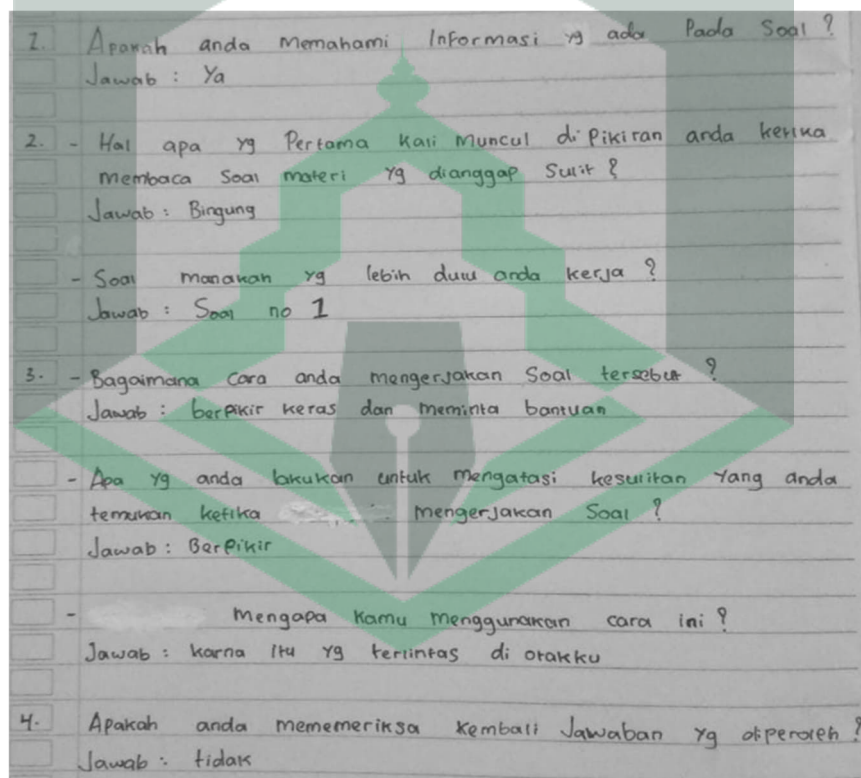 1. Apakah anda memahami Informasi yg ada Pada Soal ?
Jawab : Ya
2. - Hal apa yg Pertama kali Muncul di Pikiran anda ketika
membaca Soal materi yg dianggap Sulit ?
Jawab : Bingung
- Soal manakah yg lebih dulu anda kerja ?
Jawab : Soal no 1
3. - Bagaimana cara anda mengerjakan Soal tersebut ?
Jawab : berpikir keras dan meminta bantuan
- Apa yg anda lakukan untuk mengatasi kesulitan Yang anda
temukan ketika mengerjakan Soal ?
Jawab : Berpikir
- mengapa kamu menggunakan cara ini ?
Jawab : karna Itu yg terlintas di otakku
4. Apakah anda mememeriksa kembali Jawaban yg diperoleh ?
Jawab : tidak